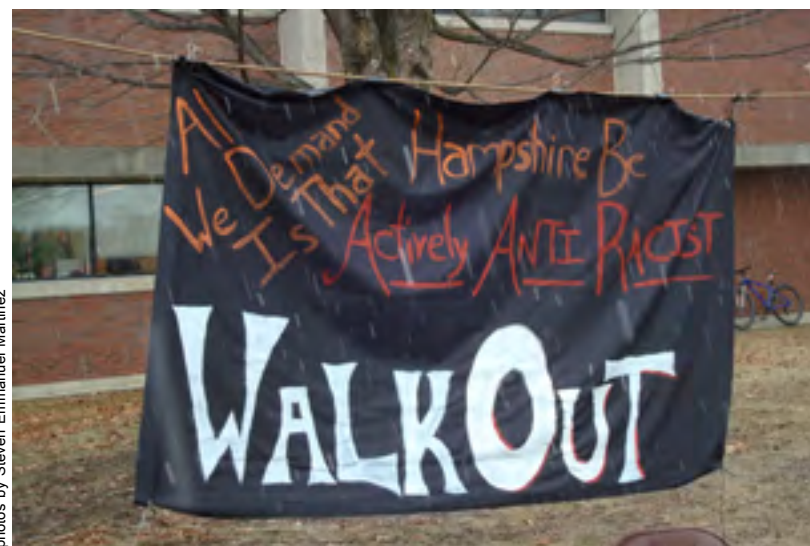 All We Demand Is That Hampshire Be
Actively ANTI RACIST
WALKOUT
photos by Steven Emmanuel Martinez